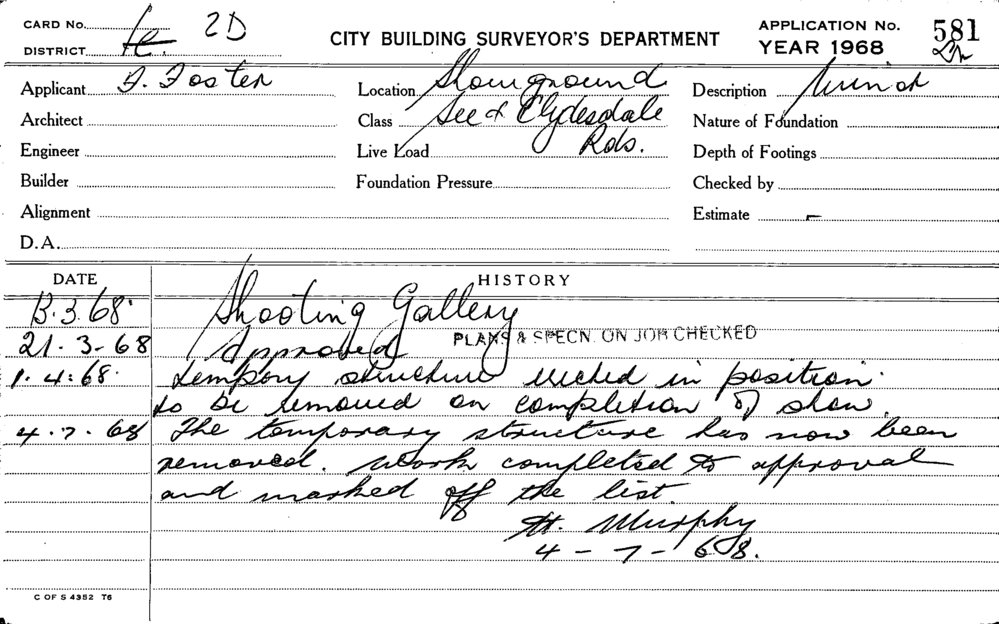 CARD No. 2D
CITY BUILDING SURVEYOR'S DEPARTMENT
APPLICATION No. 581
DISTRICT
YEAR 1968
Applicant J. Foster
Location Showground
Description
Architect
Class See & Clydesdale
Nature of Foundation
Engineer
Live Load Rds.
Depth of Footings
Builder
Foundation Pressure
Checked by
Alignment
Estimate –
D.A.
DATE HISTORY
13.3.68. Shooting Gallery
21-3-68 Approved PLANS & SPECN. ON JOB CHECKED
1.4.68. tempory structure erected in position
to be removed on completion of show.
4.7.68 The temporary structure has now been
removed. Work completed to approval
and marked off the list.
H. Murphy
4-7-68.
C OF S 4352 T6